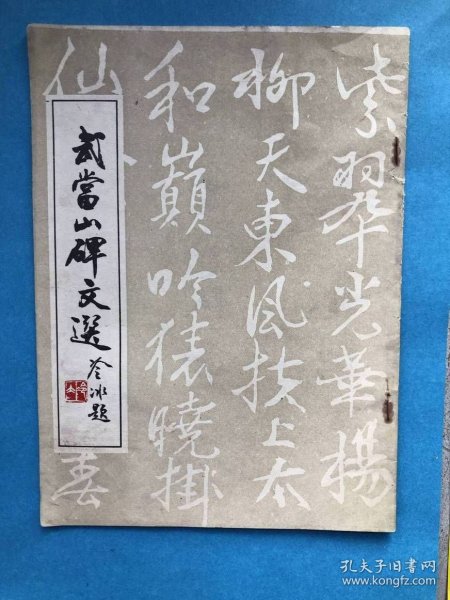 紫翠光華楊
柳天東風扶上太
和巔吟猿曉掛
仙
春
武當山碑文選
冷冰題
孔夫子旧书网
www.kongfz.com